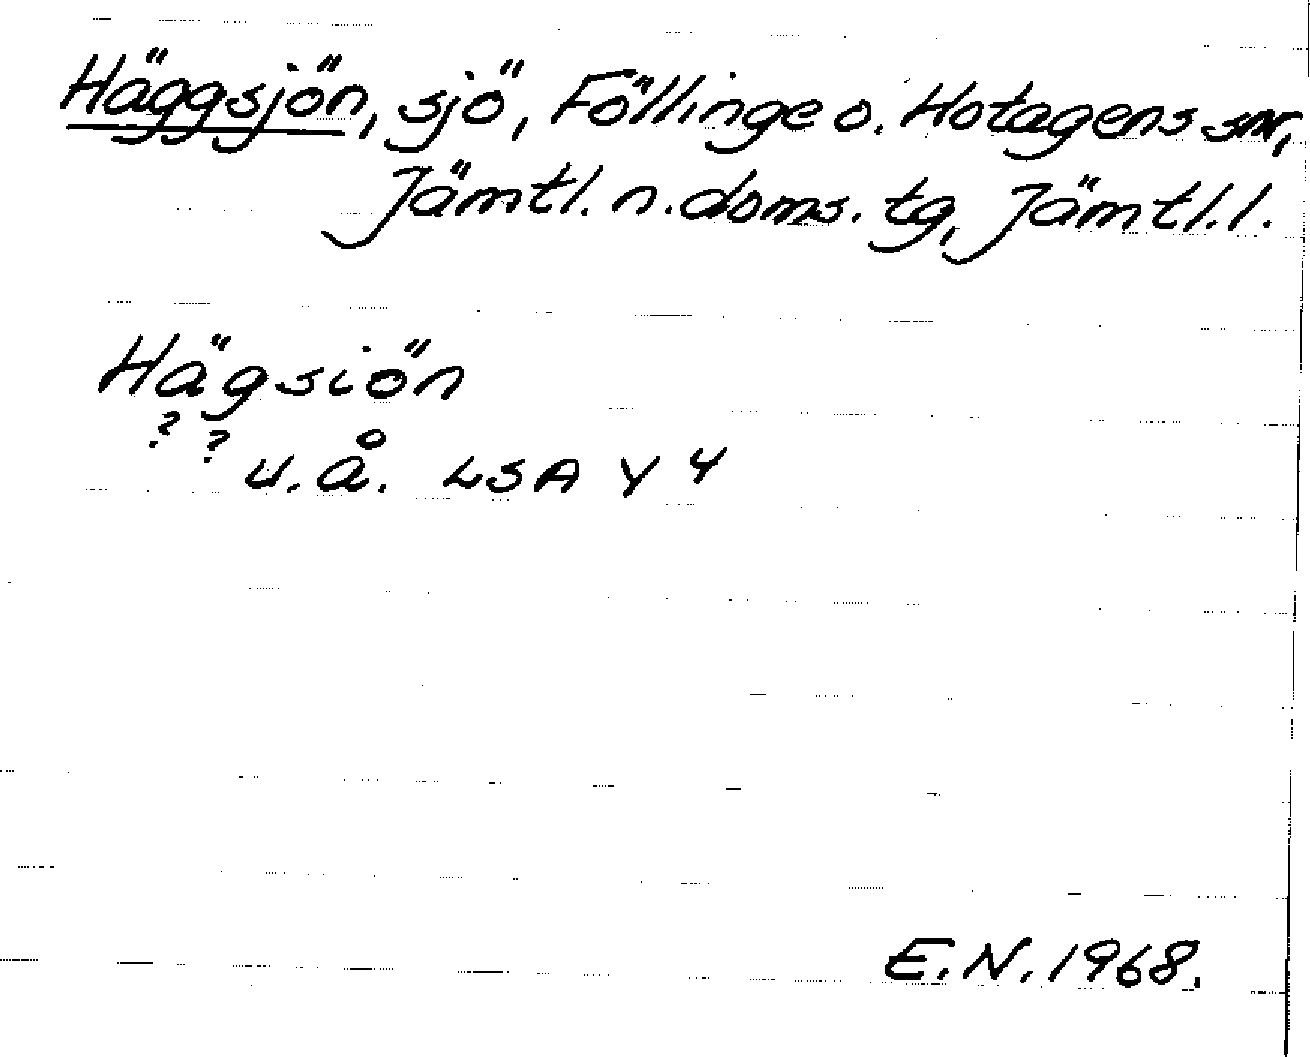 Häggsjön, sjö, Föllinge o. Hotagens snr,
Jämtl. n. doms. tg, Jämtl. l.
Hägsiön
? ?
u. å. LSA Y 4
E.N. 1968.